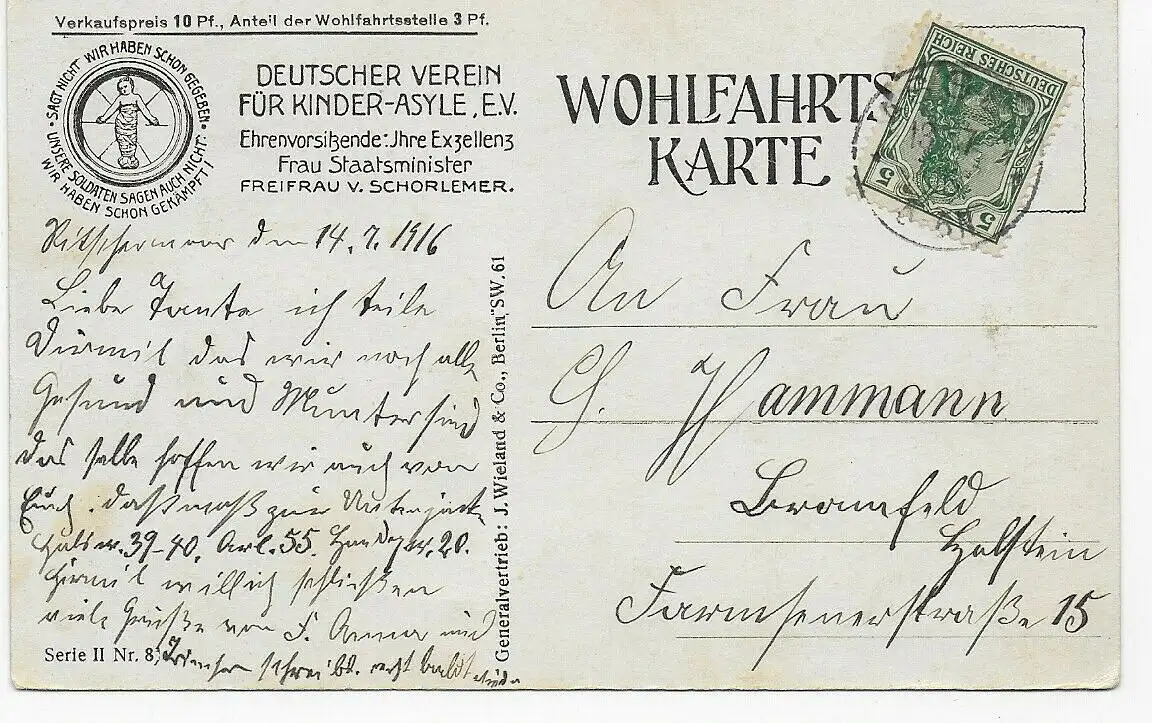 Verkaufspreis 10 Pf., Anteil der Wohlfahrtsstelle 3 Pf.
SAGT NICHT WIR HABEN SCHON GEGEBEN
UNSERE SOLDATEN SAGEN AUCH NICHT:
WIR HABEN SCHON GEKÄMPFT!
DEUTSCHER VEREIN
FÜR KINDER-ASYLE, E.V.
Ehrenvorsitzende: Ihre Exzellenz
Frau Staatsminister
FREIFRAU V. SCHORLEMER.
WOHLFAHRTS
KARTE
DEUTSCHES REICH
5 5
den 14.7.1916
Liebe Tante ich teile
Dir mit das wir noch alle
Gesund und Munter sind
das selbe hoffen wir auch von
Euch. das maß zur Unterjack
Hals w. 39-40, Arl. 55. 20.
Hiermit will ich schließen
viele Grüße von F. Anna und
schreibt recht bald wieder
Serie II Nr. 8
Generalvertrieb: J. Wieland & Co., Berlin, SW. 61
An Frau
G. Hammann
Bramfeld
Holstein
Farmsenerstraße 15